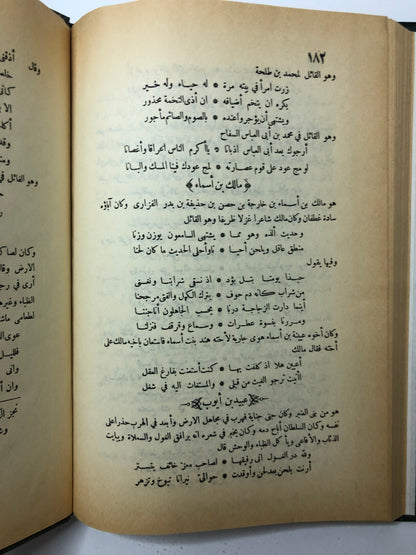 ١٨٢
وهو القائل لمحمد بن طلحة
زرت امرأ في بيته مرة * له حياء وله خير
يكره ان يتخم أضيافه * ان أذى التخمة محذور
ويشتهى أن يؤجروا عنده * بالصوم والصائم مأجور
وهو القائل في محمد بن أبي العباس السفاح
أرجوك بعد أبي العباس اذبانا * يا أكرم الناس اعراقا وأغصانا
لو مج عود على قوم عصارته * لمج عودك فينا المسك والبانا
﴿ مالك بن أسماء ﴾
هو مالك بن أسماء بن خارجة بن حصن بن حذيفة بن بدر الفزارى وكان آباؤه
سادة غطفان وكان مالك شاعرا غزلا ظريفا وهو القائل
وحديث ألذه هو مما * يشتهى السامعون يوزن وزنا
منطق عاقل ويلحن أحيا * نا وأحلى الحديث ما كان لحنا
وفيها يقول
حبذا يومنا بتل بؤد * اذ نسقى شرابنا ونغنى
من شراب كانه دم جوف * يترك الكهل والفتى مرجحنا
أينما دارت الزجاجة درنا * يحسب الجاهلون أنا جننا
ومررنا بنسوة عطرات * وسماع وقرقف فنزلنا
وكان أخوه عيينة بن أسماء هوى جارية لأخته هند بنت أسماء فاستعان بأخيه مالك على
أخته فقال مالك
أعيين هلا اذ كلفت بها * كنت استعنت بفارغ العقل
أأتيت ترجو الغوث من قبلى * والمستغاث اليه في شغل
﴿ عبيد بن أيوب ﴾
هو من بنى العنبر وكان جنى جناية فهرب في مجاهل الارض وأبعد في الهرب حذرا على
نفسه وكان السلطان أباح دمه وكان يخبر في شعره انه يرافق الغول والسعلاة ويبايت
الذئاب والأفاعى ويأكل الظباء والوحش قال
ولله در الغول اى رفيقة * لصاحب قفر خائف يتستر
أرنت بلحن بعد لحن وأوقدت * حوالى نيرانا تبوخ وتزهر
وقال